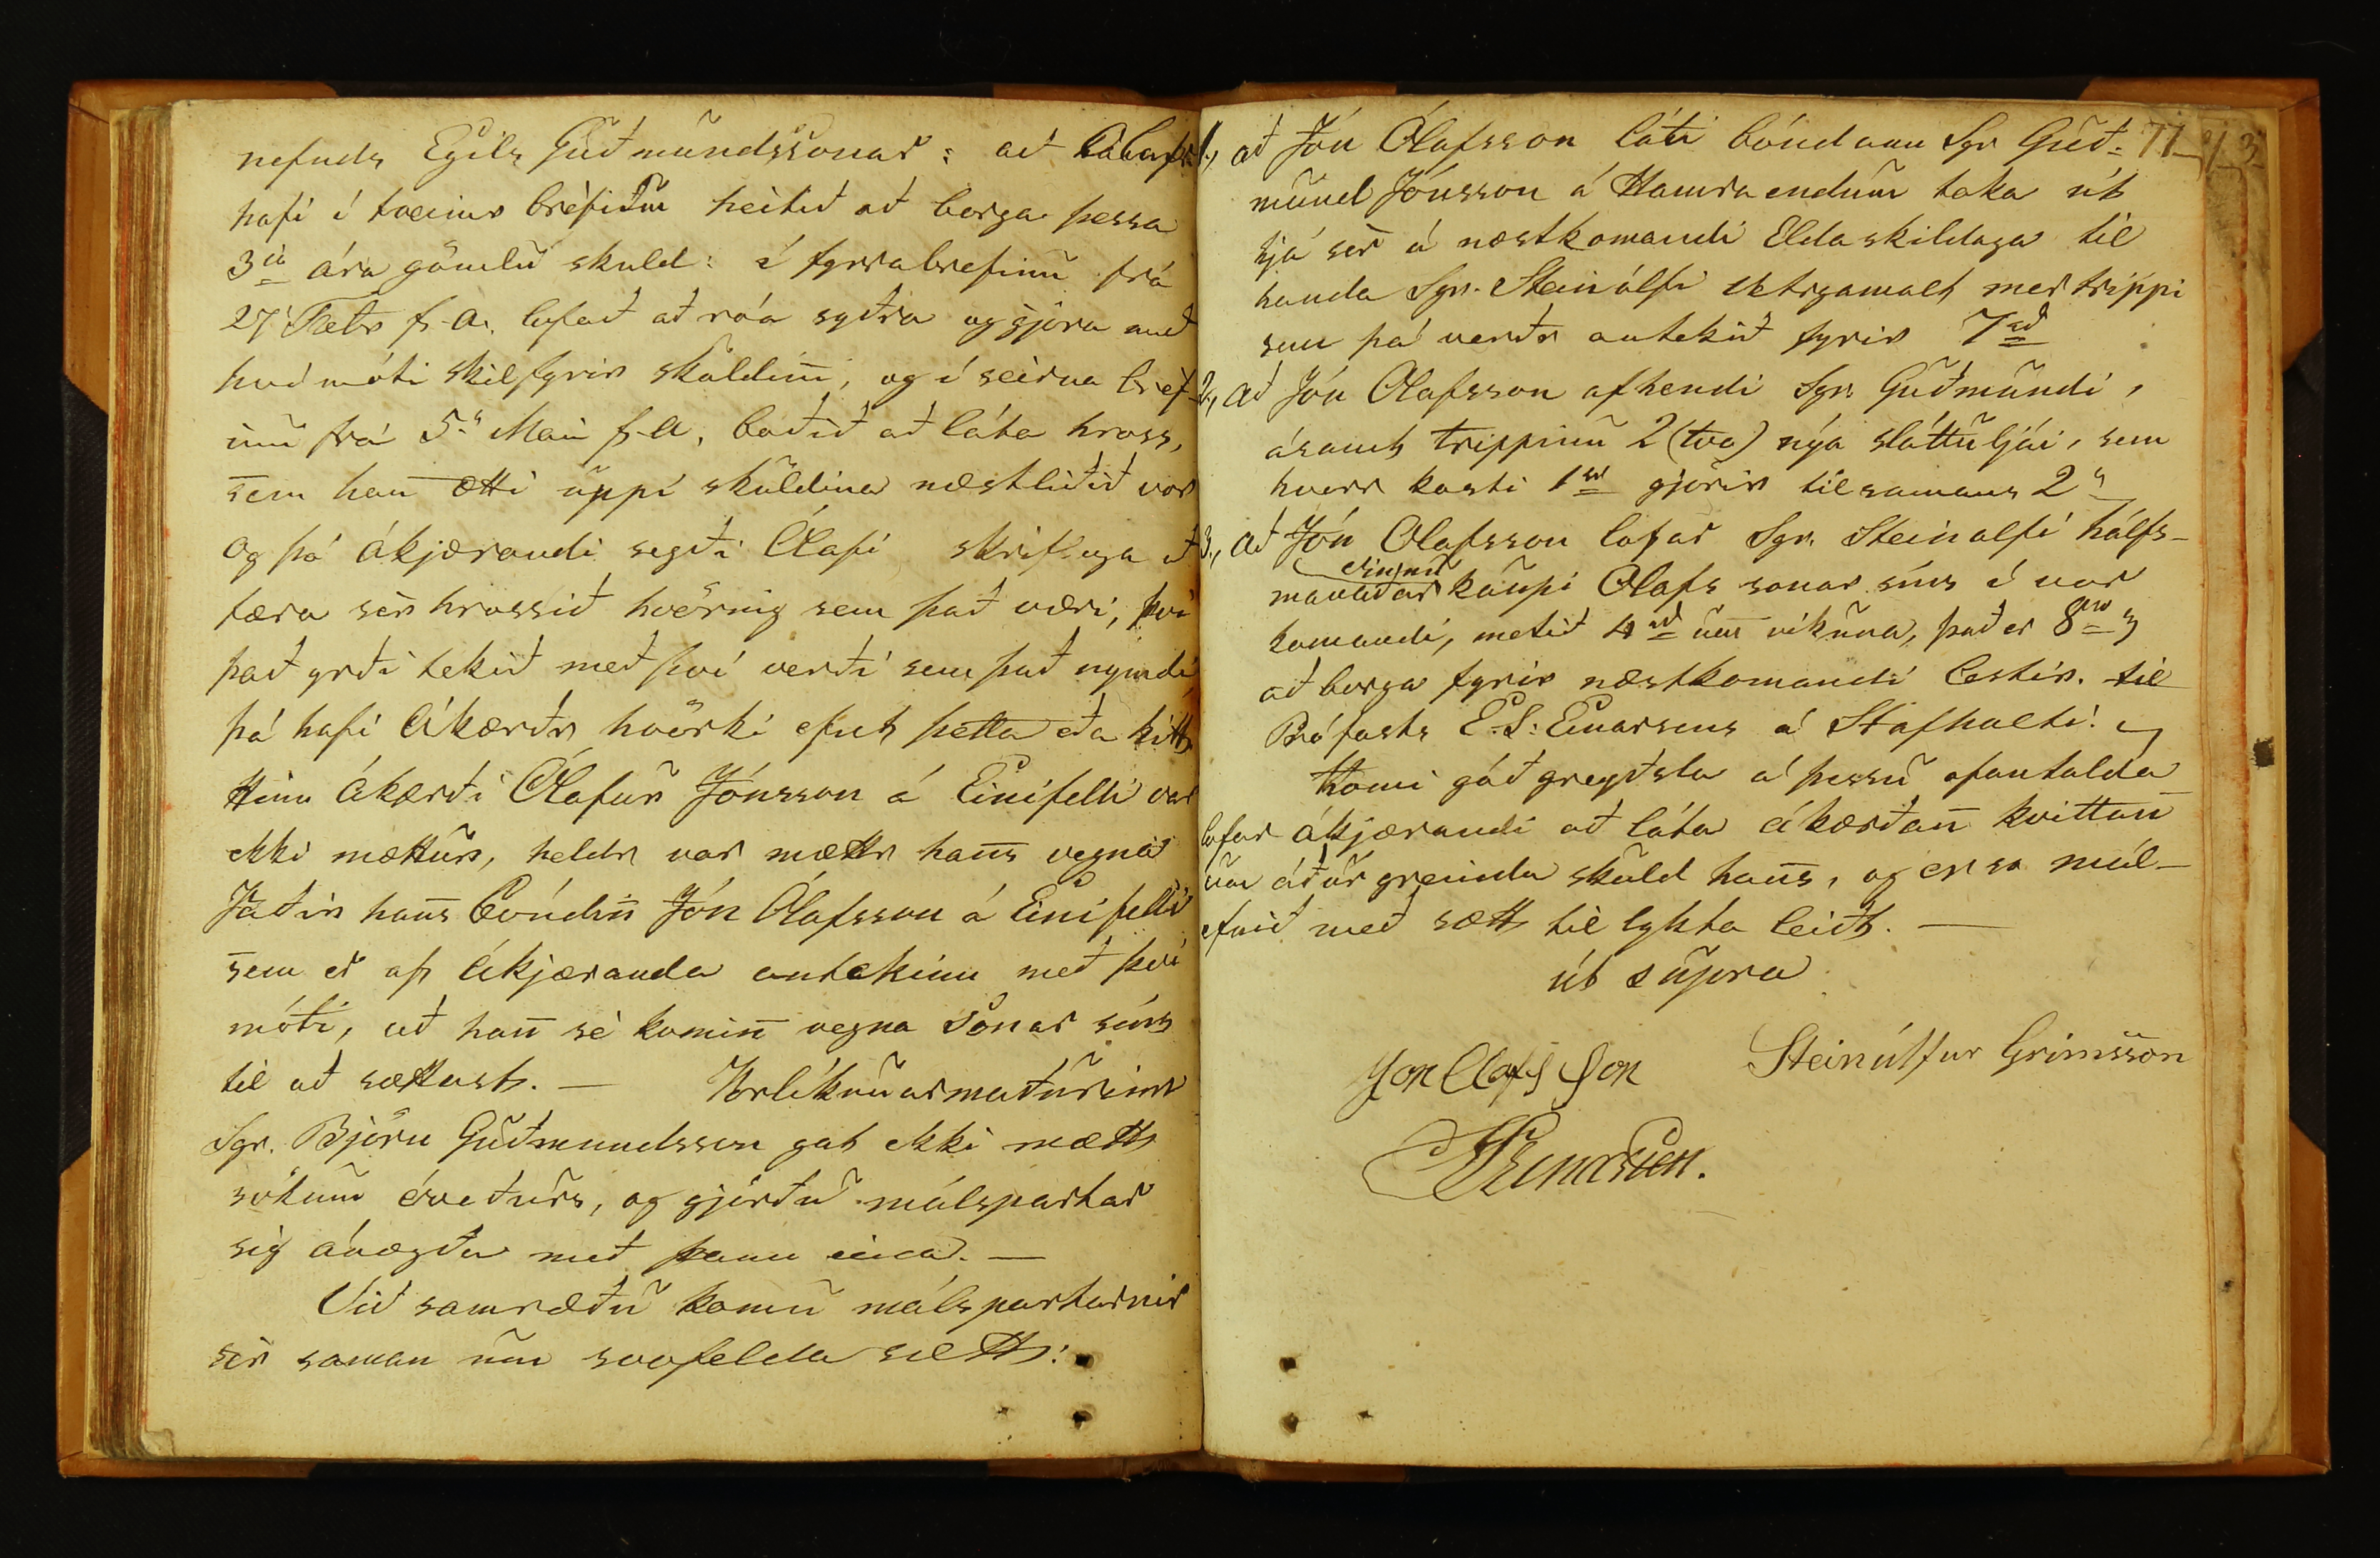 nefnds Egils Guðmundssonar: að Olafur
hafi í tveimr brèfum heitið að borga þessa
3ja ára gömlu skuld: í fyrrabrefinu frá
27 Febr f. A. lofað að róa syðra og gjöra með
því móti skil fyrir skuldiñi, og í seirna bref-
inu frá 5" Mai f. A, boðið að láta hross,
sem hañ ætti uppí skuldina næstliðið vor
og þó ákjærandi segði Olafi skriflega að
færa sèr hrossið hvörnig sem það væri, því
það yrði tekið með því verði sem það nymdi
þá hafi Ákærðr hvörki efnt þetta eða hitt
Hinn Ákærði Olafur Jónsson á Einifelli var
ekki mættur, heldr var mættr hañs vegna
Faðir hañs Bóndiñ Jón Ólafsson á Einifelli
sem er af ákjæranda antekinn með því
móti, að hañ sè komiñ vegna sonar síns
til að sættast. — Forlíkunarmaðurinn
Sgr. Björn Guðmundsson gat ekki mætt
sökum óveðurs, og gjörðu málspartar
sig ánægða með þann eina. —
Við samræðu komu málspartarnir
sèr saman um svofelda sætt:
71
3
1, að Jón Ólafsson láti bóndann Sgr Guð-
mund Jónsson á Hamraendum taka út
hjá sèr á næstkomandi Eldaskildaga til
handa Sgr. Steinólfi vetrgamalt mertrippi
sem þá verðr antekið fyrir 7rd
2, að Jón Olafsson afhendi Sgr. Guðmundi,
ásamt trippinu 2 (tvo) nýa sláttuljái, sem
hverr kosti 1rd gjörir tilsamans 2"
3, að Jón Olafsson lofar Sgr. Steinolfi hálfs-
vinnu
mánaðar kaupi Olafs sonar síns á vor
komandi, metið 4rd um vikuna, það er 8rd
að borga fyrir næstkomandi lestir. til
Prófasts E. S: Einarsens á Stafholti.
Komi góð greiðsla á þessu ofantalda
lofar ákjærandi að láta ákærðañ kvittañ
um áður greinda skuld hañs, og er so mál-
efnið með sætt til lykta leiðt. —
út supra
Jon Olafs Son Steinólfur Grimsson
Einarsen.